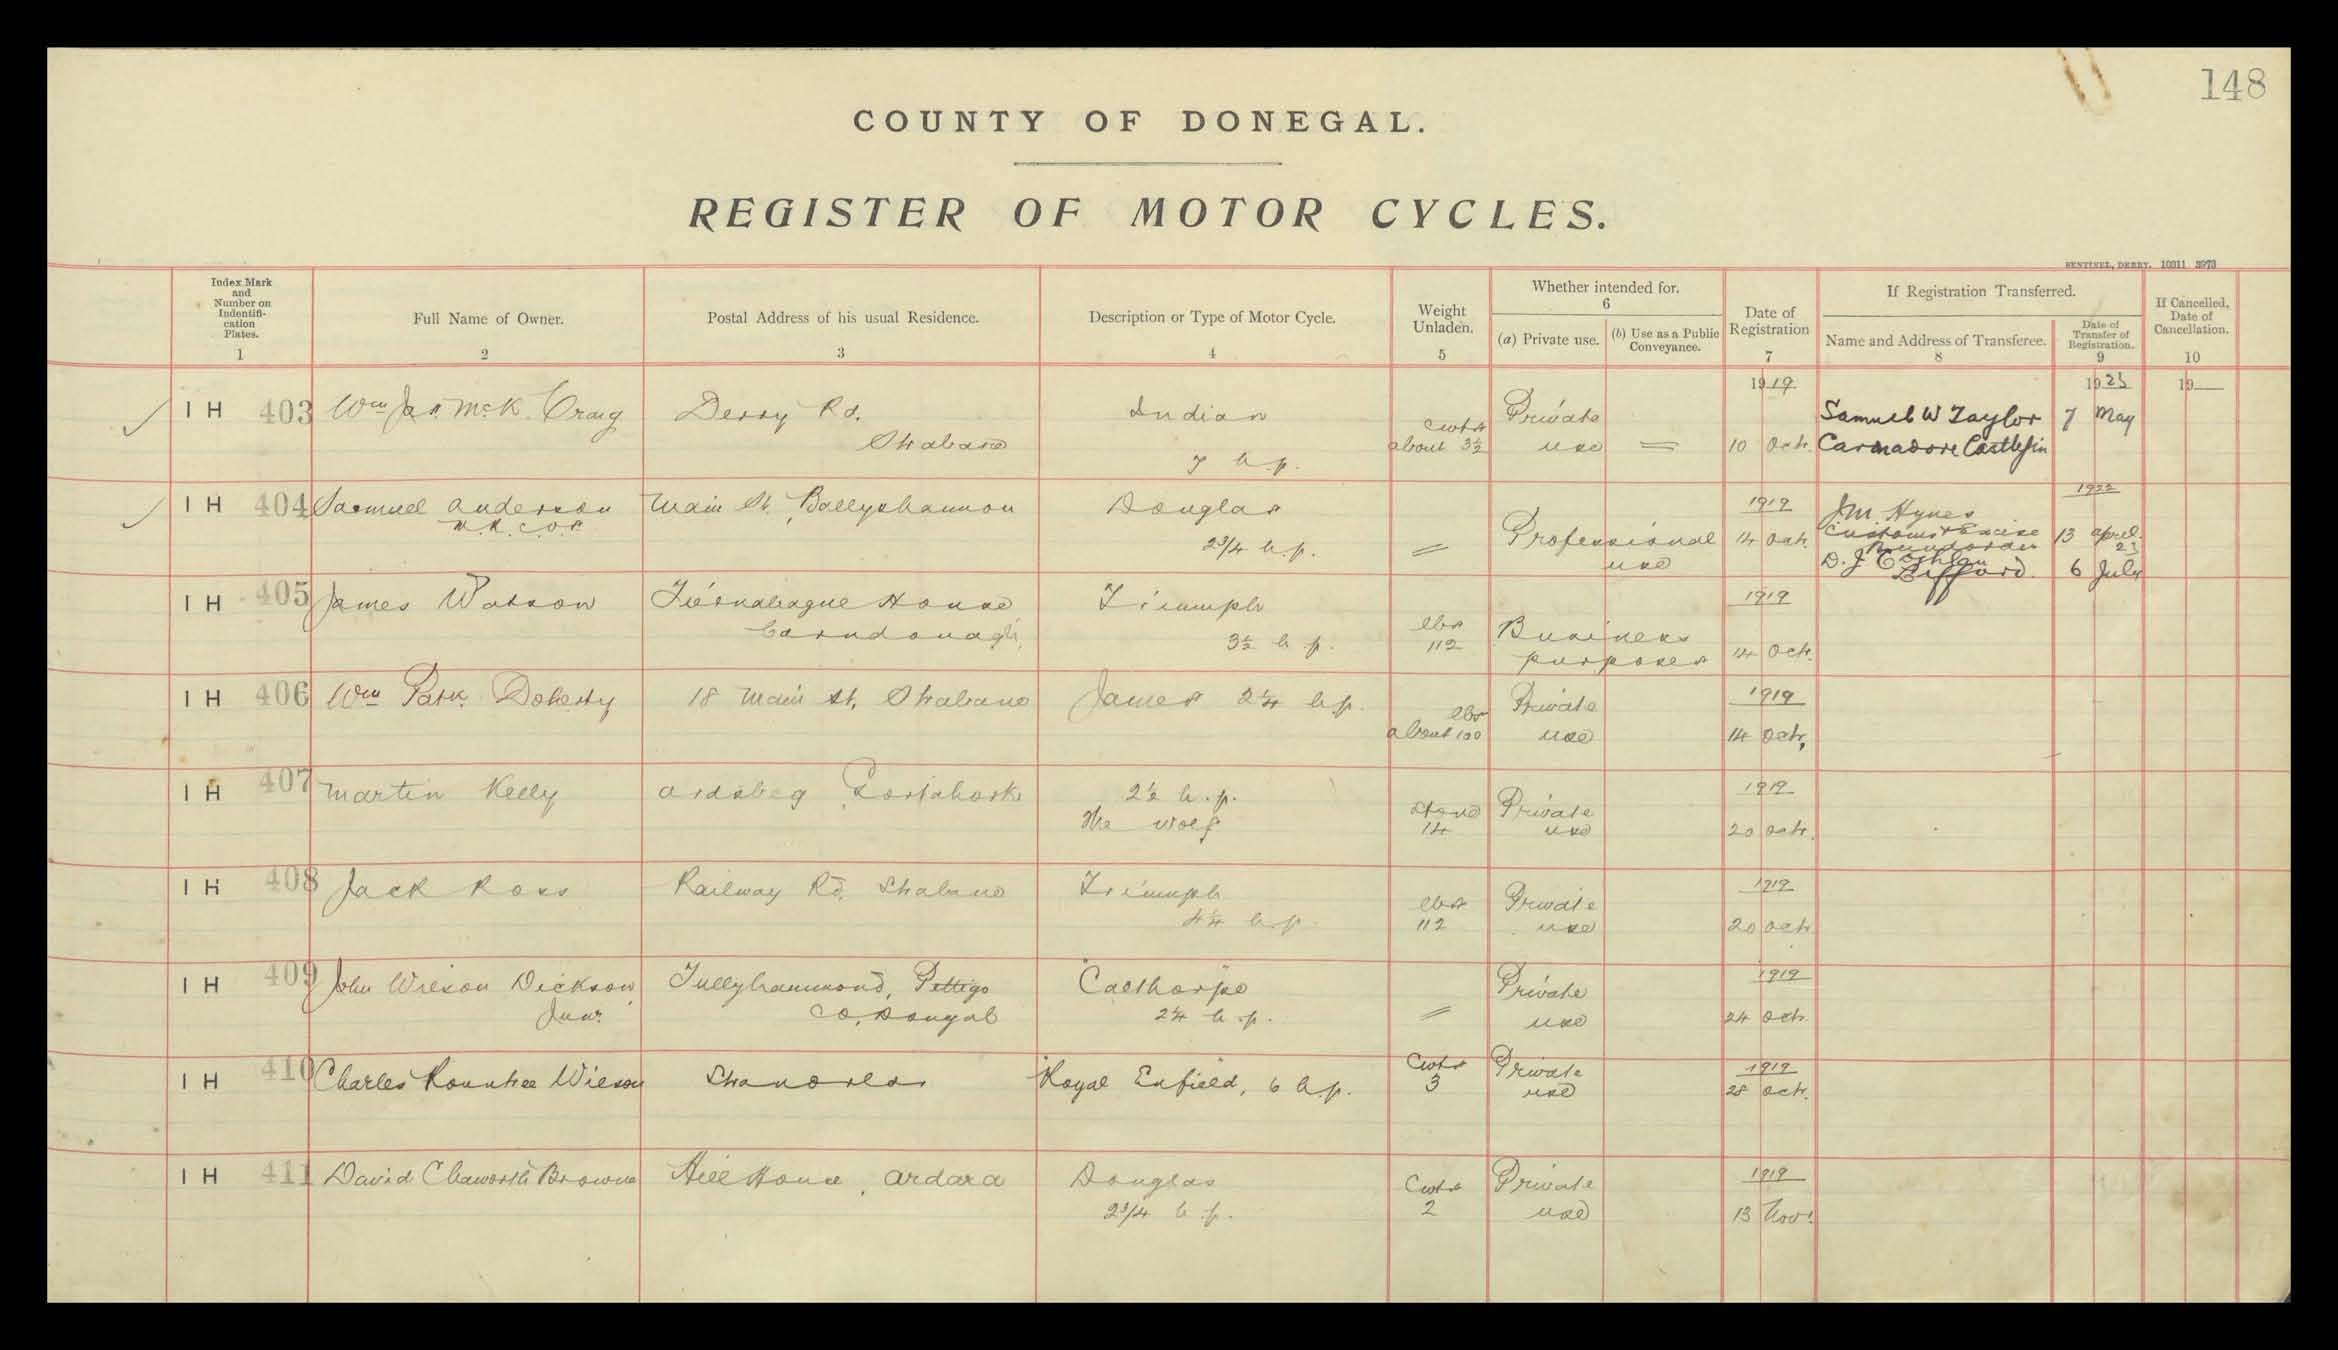 148
COUNTY OF DONEGAL.
REGISTER OF MOTOR CYCLES.
SENTINEL, DERRY. 10311 3973
Index Mark and Number on Indentifi-cation Plates.
1
Full Name of Owner.
2
Postal Address of his usual Residence.
3
Description or Type of Motor Cycle.
4
Weight Unladen.
5
Whether intended for.
6
(a) Private use.
(b) Use as a Public Conveyance.
Date of Registration
7
If Registration Transferred.
Name and Address of Transferee.
8
Date of Transfer of Registration.
9
If Cancelled, Date of Cancellation.
10
1919 1923 19
I H 403 Wm Jas. McK. Craig Derry Rd. Indian cwts Private Samuel W Taylor 7 May
Strabane 7 h.p. about 3½ use = 10 Octr. Carnadore Castlefin
I H 404 Samuel Anderson Main St. Ballyshannon Douglas 1919 J.M. Hynes 1922
M.R.C.V.S. 2¾ h.p. = Professional use 14 Octr. Customs & Excise 13 April
Bundoran 23
D. J. Lifford 6 July
I H 405 James Watson Tiernaleague House Triumph lbs Business 1919
Carndonagh, 3½ h.p. 112 purposes 14 Octr.
I H 406 Wm Park Doherty 18 Main St, Strabane James 2¼ h.p. lbs Private 1919
about 100 use 14 Octr,
I H 407 Martin Kelly Ardsbeg, Gortahork 2½ h.p. stone Private 1919
The Wolf 14 use 20 Octr.
I H 408 Jack Ross Railway Rd. Strabane Triumph lbs Private 1919
4¼ h.p. 112 use 20 Octr
I H 409 John Wilson Dickson Tullyhommond, Pettigo "Calthorpe" Private 1919
Junr. Co. Donegal 2¼ h.p. = use 24 Octr.
I H 410 Charles Rountree Wilson Stranorlar "Royal Enfield", 6 h.p. Cwts Private 1919
3 use 28 Octr.
I H 411 David Chaworth Browne Hill House, Ardara Douglas Cwts Private 1919
2¾ h.p. 2 use 13 Novr.